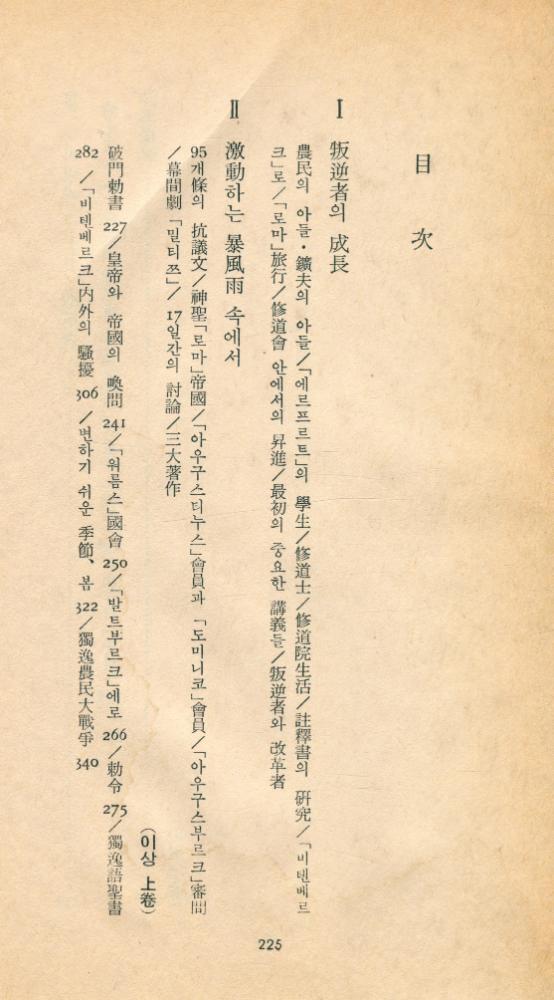 目 次
I 叛逆者의 成長
農民의 아들・鑛夫의 아들/「에르프르트」의 學生/修道士/修道院生活/註釋書의 硏究/「비텐베르
크」로/「로마」旅行/修道會 안에서의 昇進/最初의 중요한 講義들/叛逆者와 改革者
II 激動하는 暴風雨 속에서
95개條의 抗議文/神聖「로마」帝國/「아우구스티누스」會員과 「도미니코」會員/「아우구스부르크」審問
/幕間劇「밀티쯔」/17일간의 討論/三大著作
(이상 上卷)
破門勅書 227/皇帝와 帝國의 喚問 241/「워름스」國會 250/「발트부르크」에로 266/勅令 275/獨逸語聖書
282/「비텐베르크」內外의 騷擾 306/변하기 쉬운 季節、봄 322/獨逸農民大戰爭 340
225